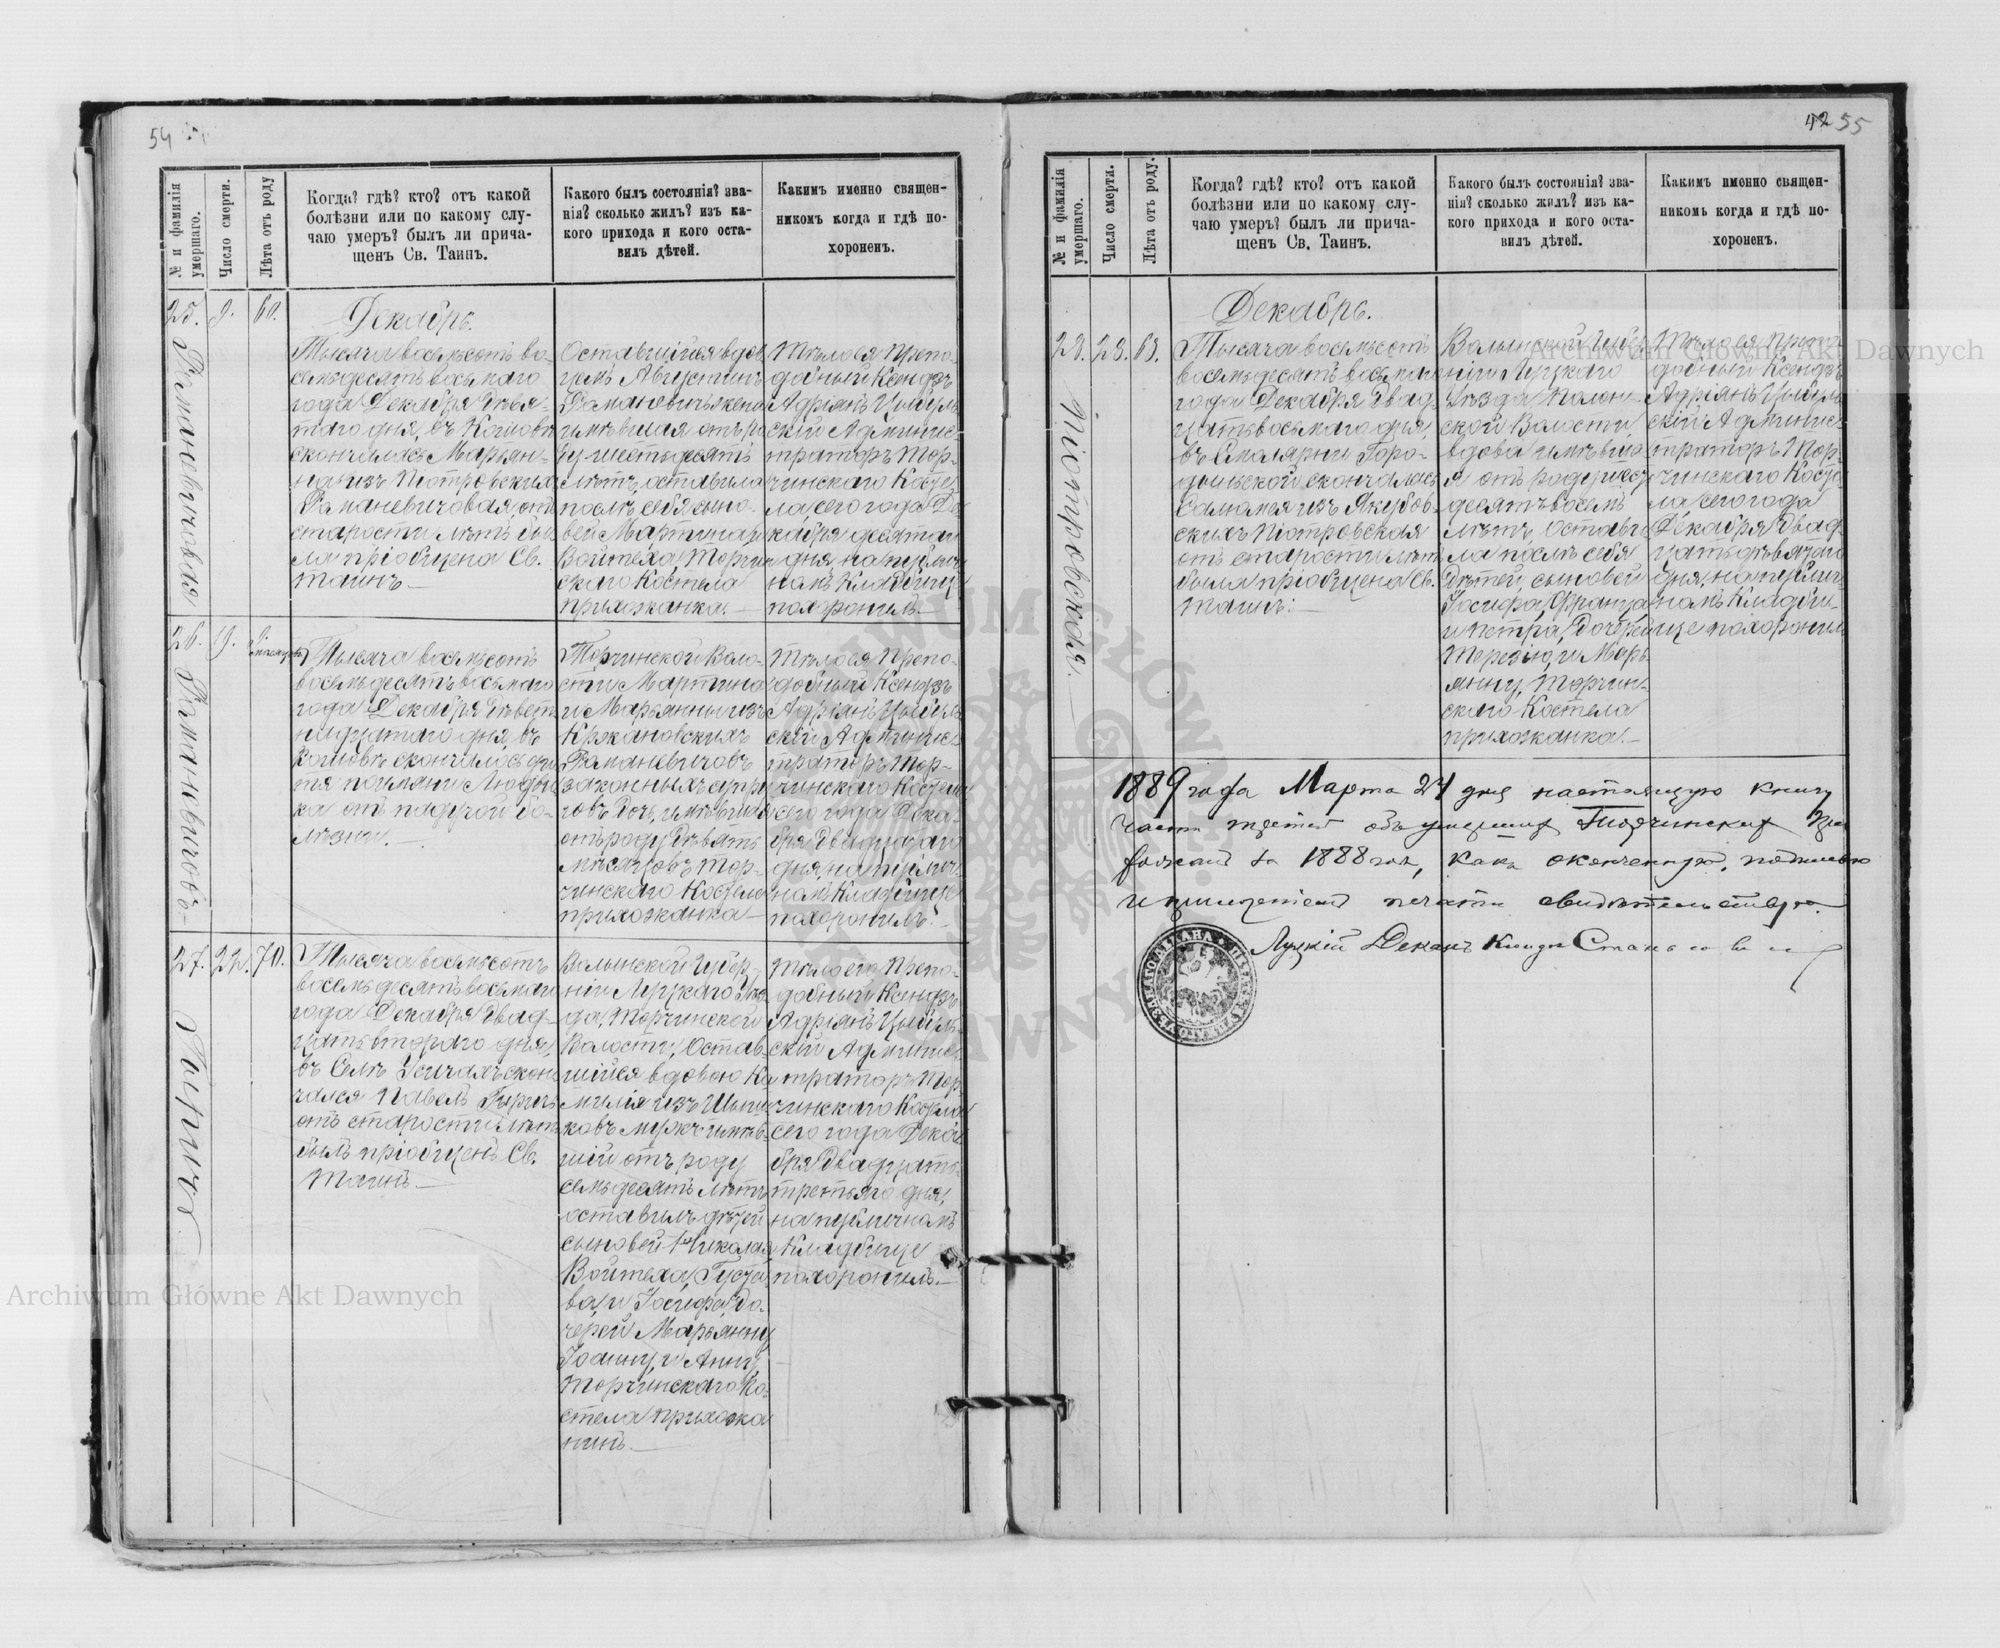 54
№ и фамилія умершаго.
Число смерти.
Лѣта отъ роду
Когда? гдѣ? кто? отъ какой
болѣзни или по какому слу-
чаю умеръ? былъ ли прича-
щенъ Св. Таинъ.
Какого былъ состоянія? зва-
нія? сколько жилъ? изъ ка-
кого прихода и кого оста-
вилъ дѣтей.
Какимъ именно священ-
никомъ когда и гдѣ по-
хороненъ.
25.
9.
60.
Романовичовая
Декабрь.
Тысяча восемьсотъ во-
семьдесятъ восьмого
года Декабря девя-
таго дня, въ
скончалась Марьян-
на изъ Піотровскихъ
Романевичовая, отъ
старости лѣтъ бы
ла пріобщена Св.
Таинъ.—
Оставшійся вдов
цемъ Августинъ
Романовичъ жена
имѣвшая отъ ро
ду шестьдесятъ
лѣтъ, оставила
послѣ себя сыно-
вей Мартина и
Войтеха, Торчин
скаго Костела
прихожанка.—
Тѣло ея Препо-
добный Ксендзъ
Адріянъ
скій Админис-
траторъ Тор-
чинскаго Косте
ла сего года Де
кабря десятаго
дня, на публич
номъ Кладбищѣ
похоронилъ.—
26.
19.
9.
Романевичовъ.
Тысяча восемьсотъ
восемьдесятъ восьмого
года Декабря девят
надцатаго дня, въ
скончилось ди
тя по имяни Людви
ка отъ падучой бо-
лѣзни.—
Торчинской Воло-
сти Мартина
и Марьянны изъ
Кржановскихъ
Романевичовъ
законныхъ супру
говъ дочь, имѣвшая
отъ роду девять
мѣсяцовъ Тор-
чинскаго Костела
прихожанка—
Тѣло ея Препо-
добный Ксендзъ
Адріянъ
скій Админис-
траторъ Тор-
чинскаго Костела
сего года Дека-
бря
дня, на публич-
номъ Кладбищѣ
похоронилъ.—
27.
22.
70.
Тысяча восемьсотъ
восемьдесятъ восьмого
года Декабря двад-
цать второго дня,
въ Селѣ Усичахъ скон
чался Павелъ
отъ старости лѣтъ
былъ пріобщенъ Св.
Таинъ—
Волынской Губер-
ніи Луцкаго Уѣз
да, Торчинской
Волости, Остав-
шійся вдовою Ка
милія изъ
ковъ мужъ имѣв-
шій отъ роду
семьдесятъ лѣтъ
оставилъ дѣтей
сыновей Николая,
Войтеха, Густа
ва, и Іосифа, до-
черей Марьянну
Іоанну, и Анну,
Торчинскаго Ко-
стела прихожа
нинъ.—
Тѣло его Препо-
добный Ксендзъ
Адріянъ
скій Админис-
траторъ Тор
чинскаго Костела
сего года Дека
бря двадцать
третьяго дня,
на публичномъ
Кладбищѣ
похоронилъ.—
42 55
№ и фамилія умершаго.
Число смерти.
Лѣта отъ роду.
Когда? гдѣ? кто? отъ какой
болѣзни или по какому слу-
чаю умеръ? былъ ли прича-
щенъ Св. Таинъ.
Какого былъ состоянія? зва-
нія? сколько жилъ? изъ ка-
кого прихода и кого оста-
вилъ дѣтей.
Какимъ именно священ-
никомъ когда и гдѣ по-
хороненъ.
28.
28.
68.
Піотровская.
Декабрь.
Тысяча восемьсотъ
восемьдесятъ восьмого
года Декабря двад-
цать восьмого дня,
въ Смолярни Горо-
скончалась
Саломея изъ Якубов
скихъ Піотровская
отъ старости лѣтъ
была пріобщена Св.
Таинъ.—
Волынской Губер
ніи Луцкаго
Уѣзда Полон-
ской Волости
вдова имѣвша
я отъ роду шест
десятъ восемь
лѣтъ, остави
ла послѣ себя
дѣтей, сыновей
Іосифа, Франца
и Петра, дочерей
Терезію, и Марь
янну, Торчин-
скаго Костела
прихожанка.—
Тѣло ея Препо
добный Ксендзъ
Адріянъ
скій Админис-
траторъ Тор-
чинскаго Косте
ла сего года
Декабря двад
цать девятаго
дня, на публич-
номъ Кладби-
ще похоронилъ
1889 года Марта 24 дня настоящую книгу
объ умершихъ Торчинскихъ
за 1888 год, какъ оконченную, подписью
и печати свидѣтельствую.
Луцкій Деканъ Ксендзъ
Archiwum Główne Akt Dawnych
Archiwum Główne Akt Dawnych